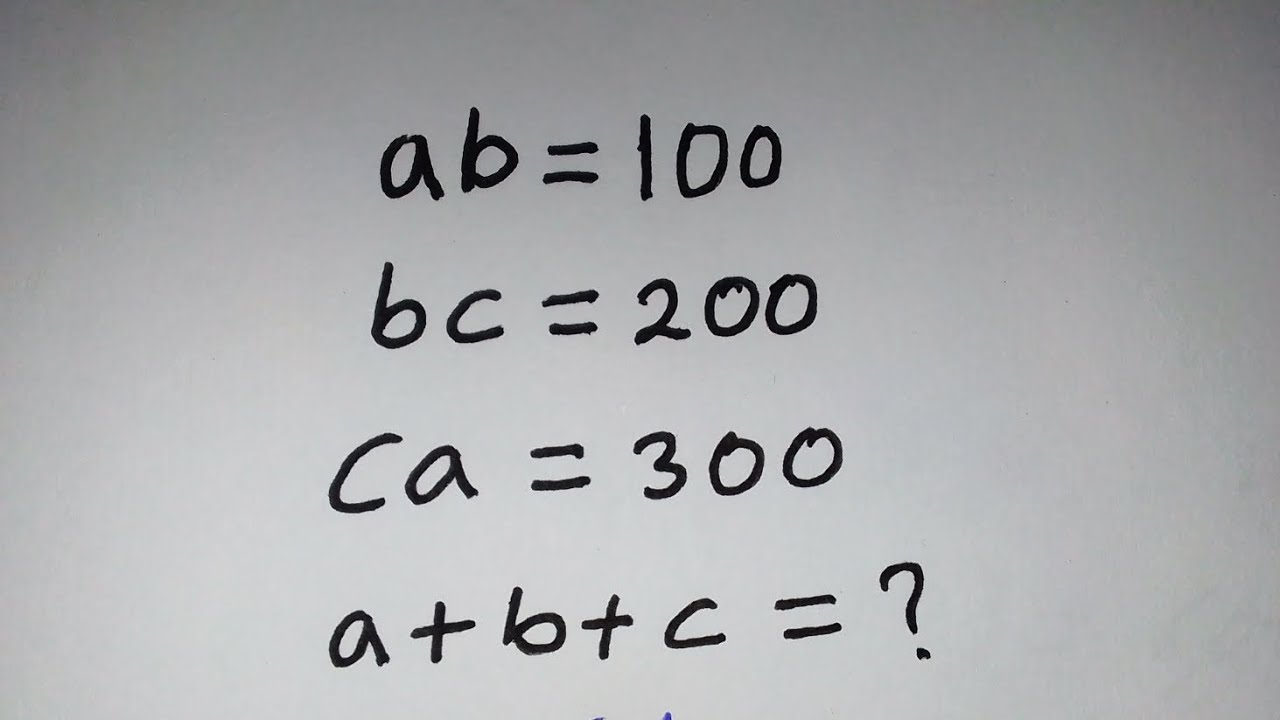 ab=100
bc=200
ca=300
a+b+c=?